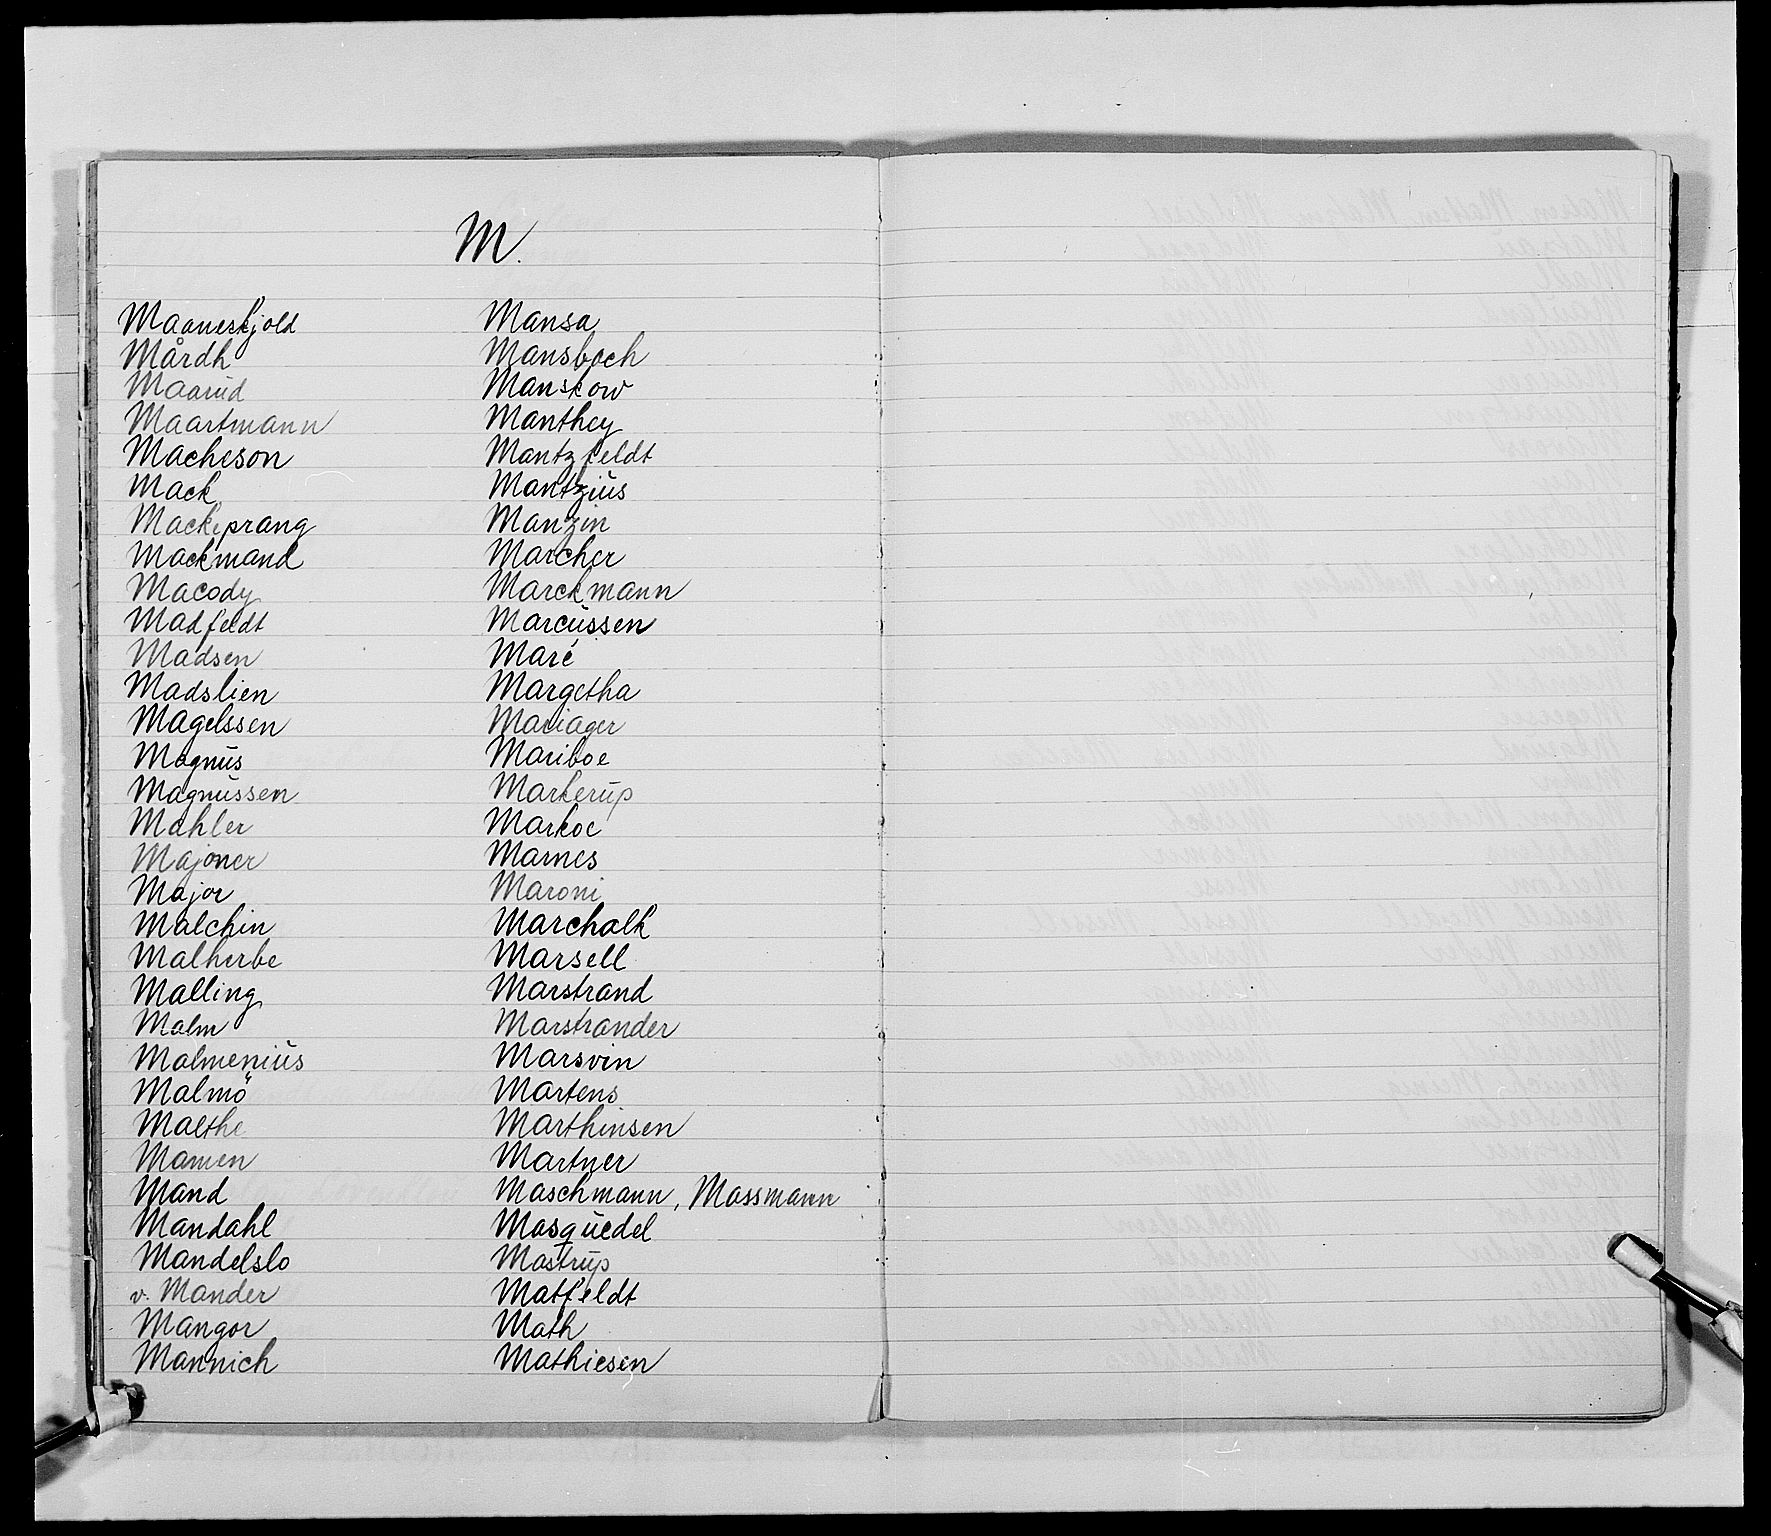 M.
Maaneskjold
Mårdh
Maarud
Maartmann
Macheson
Mack
Mackeprang
Mackmand
Macody
Madfeldt
Madsen
Madslien
Magelssen
Magnus
Magnussen
Mahler
Majoner
Major
Malchin
Malherbe
Malling
Malm
Malmenius
Malmö
Malthe
Mamen
Mand
Mandahl
Mandelslo
v. Mander
Mangor
Mannich
Mansa
Mansbach
Manskow
Manthey
Mantzfeldt
Mantzius
Manzin
Marcher
Marckmann
Marcussen
Maré
Margetha
Mariager
Mariboe
Markerup
Markoe
Marnes
Maroni
Marchalk
Marsell
Marstrand
Marstrander
Marsvin
Martens
Marthinsen
Martner
Maschmann, Massmann
Masquedel
Mastrup
Matfeldt
Math
Mathiesen